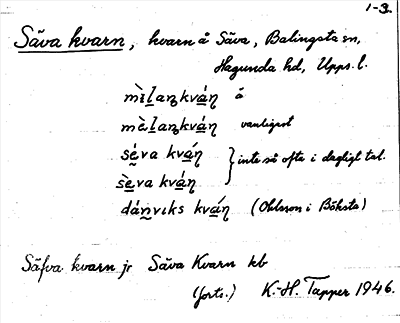 1-3.
Säva kvarn, kvarn å Säva, Balingsta sn,
Hagunda hd, Upps. l.
mɪ̀laŋkván å
mèlaŋkván vanligast
séva kván } inte så ofta i dagligt tal.
sèva kván
dánviks kván (Ohlsson i Böksta)
Säfva kvarn jr Säva Kvarn kb
(forts.) K.-H. Tapper 1946.